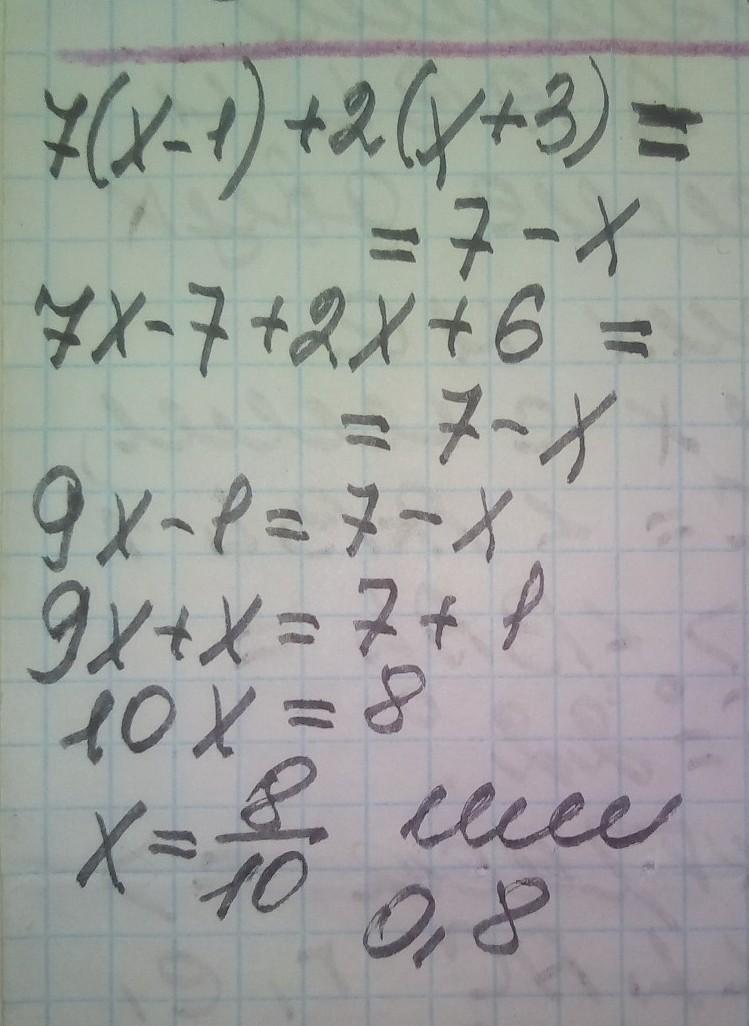 7(x-1)+2(x+3)=
=7-x
7x-7+2x+6=
=7-x
9x-1=7-x
9x+x=7+1
10x=8
x=8/10 или
0,8